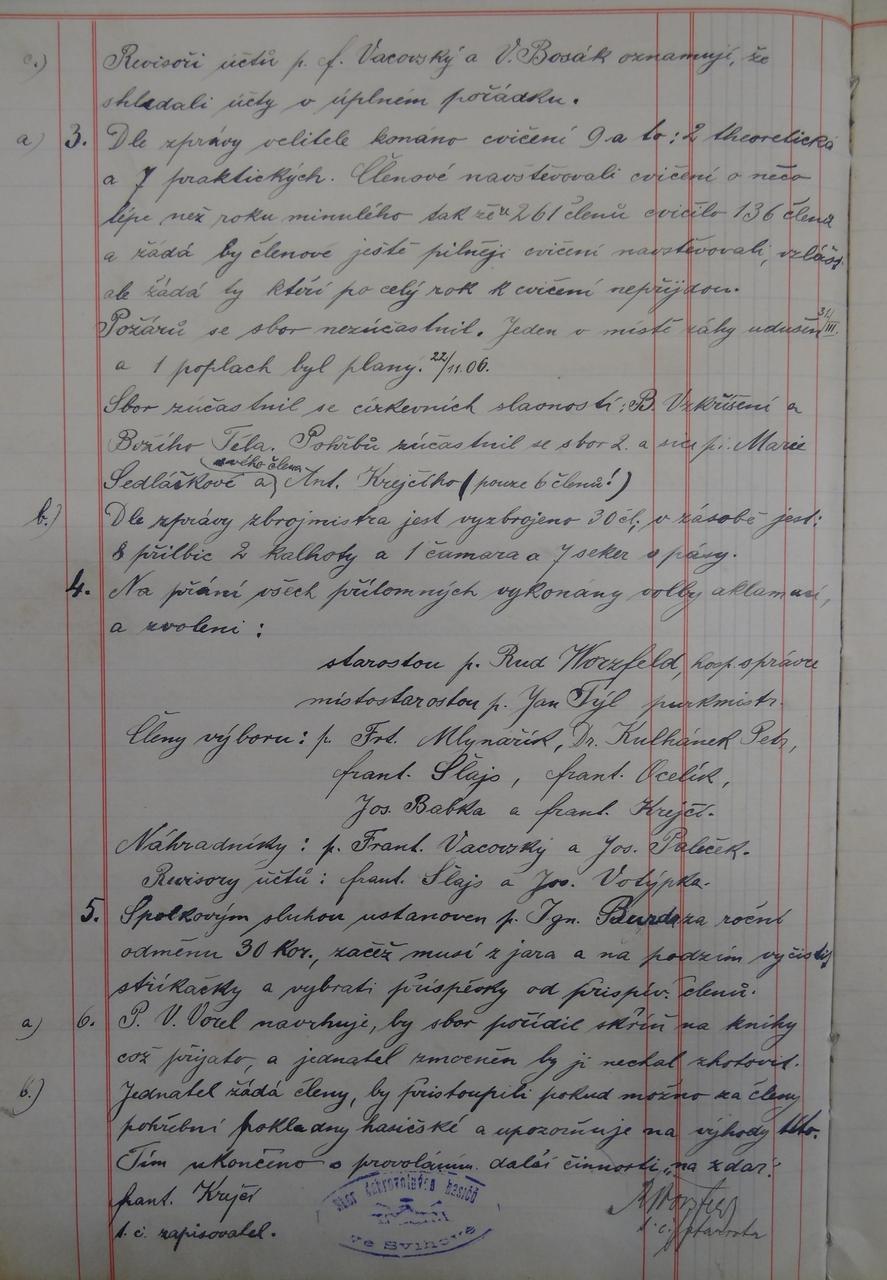 c.) Revisoři účtů p. f. Vacovský a V. Bosák oznamují, že
shledali účty v úplném pořádku.
a) 3. Dle zprávy velitele konáno cvičení 9 a to: 2 theoretická
a 7 praktických. Členové navštěvovali cvičení o něco
lépe než roku minulého tak že z 261 členů cvičilo 136 členů
a žádá by členové ještě pilněji cvičení navštěvovali, vzlášť
ale žádá ty kteří po celý rok k cvičení nepřijdou.
Požárů se sbor nezúčastnil. Jeden v místě záhy udušen 31/III.
a 1 poplach byl planý. 22/11.06.
Sbor zúčastnil se církevních slavností: B. Vzkříšení a
Božího Těla. Pohřbů zúčastnil se sbor 2. a sice pí. Marie
svého člena
Sedláčkové a Ant. Krejčího (pouze 6 členů!)
b.) Dle zprávy zbrojmistra jest vyzbrojeno 30 čl., v zásobě jest:
8 přilbic 2 kalhoty a 1 čamara a 7 seker s pásy.
4. Na přání všech přítomných vykonány volby aklamací,
a zvoleni:
starostou p. Rud Worzfeld, hosp. správce
místostarostou p. Jan Týl purkmistr.
Členy výboru: p. Frt. Mlynařík, Dr. Kulhánek Petr,
frant. Šlajs, frant. Ocelík,
Jos. Babka a frant. Krejčí.
Náhradníky: p. Frant. Vacovský a Jos. Paleček.
Revisory účtů: frant. Šlajs a Jos. Votýpka.
5. Spolkovým sluhou ustanoven p. Ign. Burda za roční
odměnu 30 Kor., začež musí z jara a na podzim vyčistiti
stříkačky a vybrati příspěvky od přispív. členů.
a) 6. P. V. Vorel navrhuje, by sbor pořídil skříň na knihy
což přijato, a jednatel zmocněn by ji nechal zhotovit.
b.) Jednatel žádá členy, by přistoupili pokud možno za členy
pohřební pokladny hasičské a upozorňuje na výhody této.
Tím ukončeno s provoláním další činnosti „na zdar".
frant. Krejčí
t. č. zapisovatel.
Sbor dobrovolných hasičů
ve Svihově
R Worzfeld
t. č. starosta